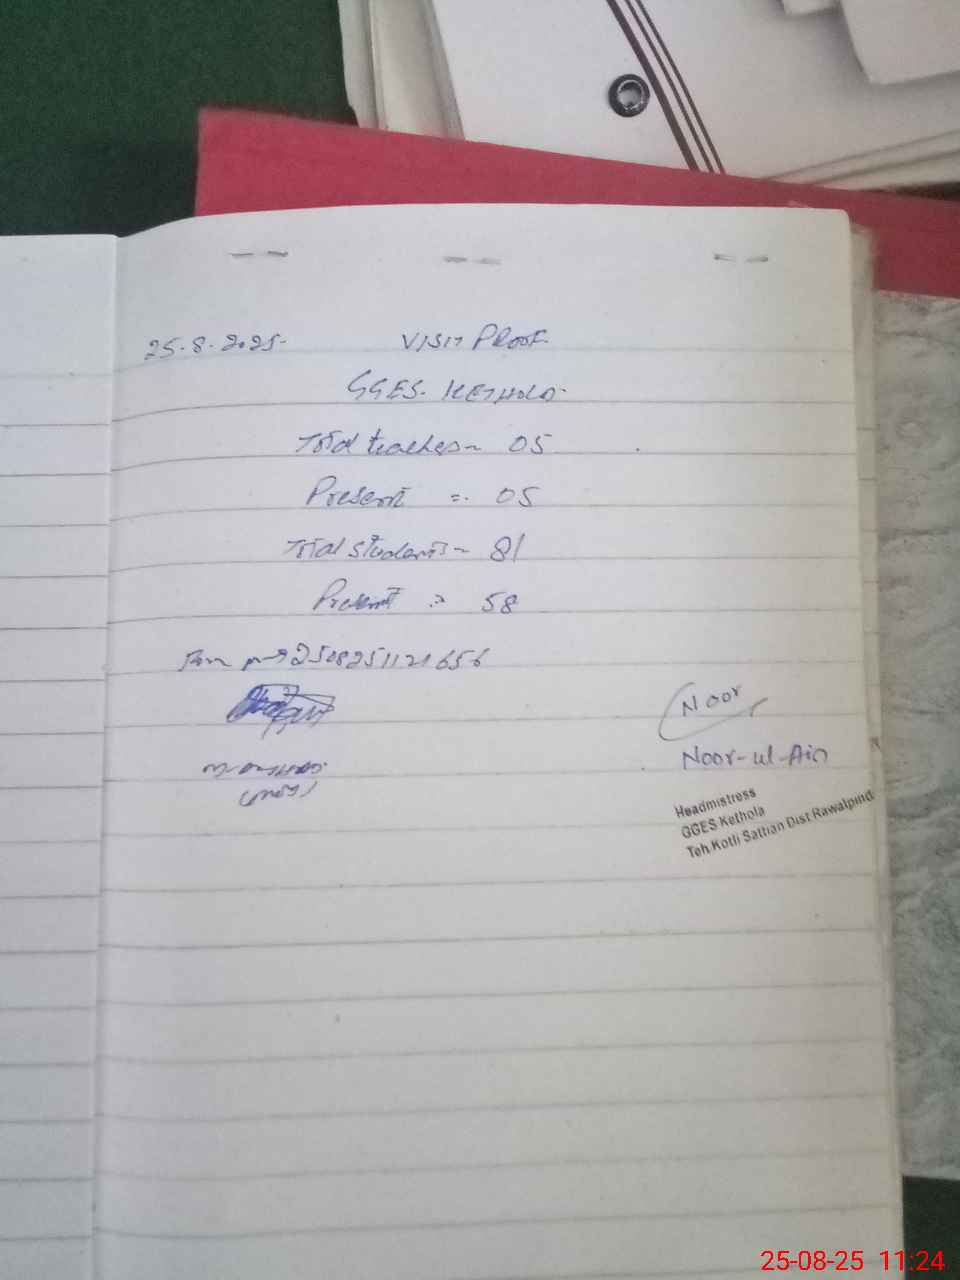 25.8.2025. VISIT PROOF
GGES. KETHOLA.
Total teachers - 05
Present = 05
Total students - 81
Present = 58
2508251121656
Noor
Noor-ul-Ain
Headmistress
GGES Kethola
Teh Kotli Sattian Dist Rawalpindi
25-08-25 11:24